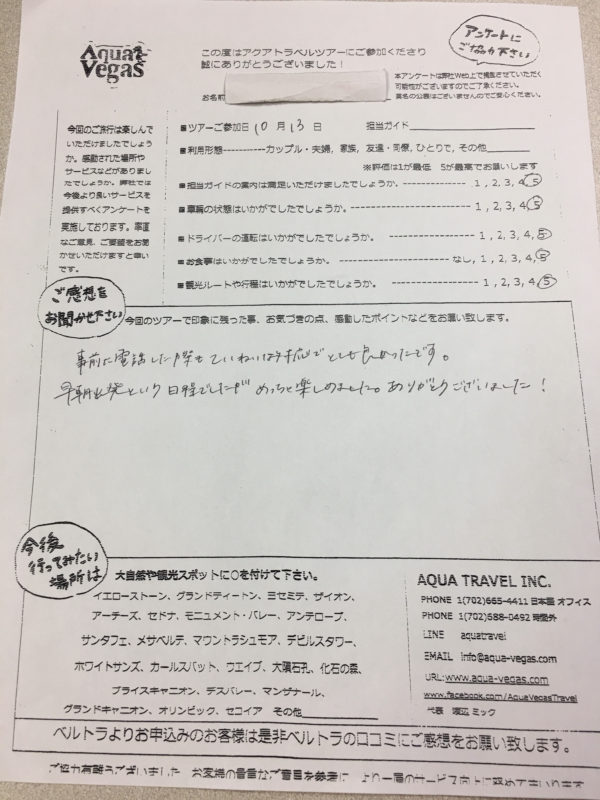 Aqua
Vegas
この度はアクアトラベルツアーにご参加くださり
誠にありがとうございました！
アンケートに
ご協力下さい
本アンケートは弊社Web上で掲載させていただく
可能性がございますのでご了承ください。
実名の公表はございませんのでご安心ください
お名前
今回のご旅行は楽しんで
いただけましたでしょう
か。感動された場所や
サービスなどがありまし
たでしょうか。弊社では
今後より良いサービスを
提供すべくアンケートを
実施しております。率直
なご意見、ご要望をお聞
かせいただけますと幸い
です。
■ツアーご参加日 10 月 13 日 担当ガイド
■利用形態-----------カップル・夫婦，家族，友達・同僚，ひとりで，その他
※評価は1が最低 5が最高でお願いします
■担当ガイドの案内は満足いただけましたでしょうか。---------------- 1，2，3，4，5
■車輌の状態はいかがでしたでしょうか。---------------- 1，2，3，4，5
■ドライバーの運転はいかがでしたでしょうか。---------------- 1，2，3，4，5
■お食事はいかがでしたでしょうか。---------------- なし，1，2，3，4，5
■観光ルートや行程はいかがでしたでしょうか。---------------- 1，2，3，4，5
ご感想を
お聞かせ下さい
今回のツアーで印象に残った事、お気づきの点、感動したポイントなどをお願い致します。
事前に電話した際もていねいな対応でとても良かったです。
早朝出発という日程でしたがめっちゃ楽しめました。ありがとうございました！
今後
行ってみたい
場所は
大自然や観光スポットに○を付けて下さい。
イエローストーン、グランドティートン、ヨセミテ、ザイオン、
アーチーズ、セドナ、モニュメント・バレー、アンテロープ、
サンタフェ、メサベルデ、マウントラシュモア、デビルスタワー、
ホワイトサンズ、カールスバット、ウエイブ、大隕石孔、化石の森、
ブライスキャニオン、デスバレー、マンザナール、
グランドキャニオン、オリンピック、セコイア その他
AQUA TRAVEL INC.
PHONE 1(702)665-4411 日本語 オフィス
PHONE 1(702)588-0492 時間外
LINE aquatravel
EMAIL info@aqua-vegas.com
URL:www.aqua-vegas.com
www.facebook.com/AquaVegasTravel
代表 渡辺 ミック
ベルトラよりお申込みのお客様は是非ベルトラの口コミにご感想をお願い致します。
ご協力有難うございました お客様の貴重なご意見を参考に、より一層のサービス向上に努めてまいります